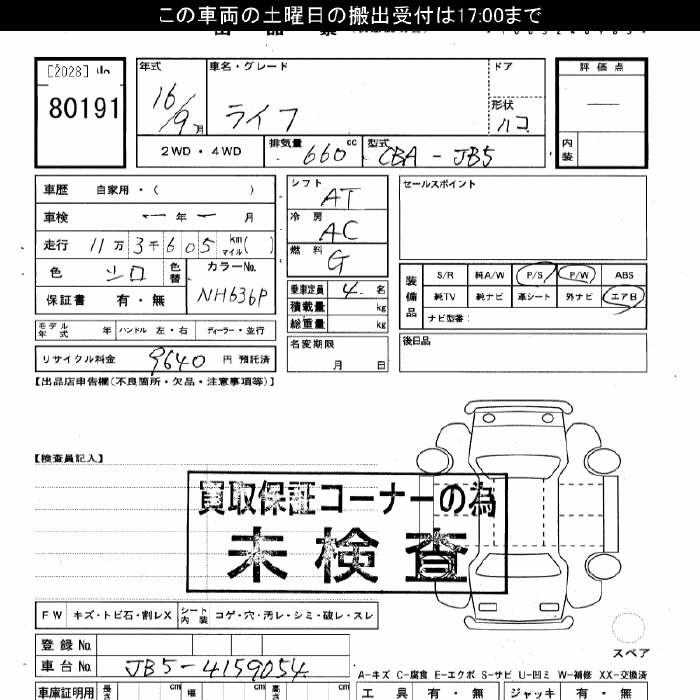 この車両の土曜日の搬出受付は17:00まで
[2028]
80191
年式 車名・グレード ドア 評価点
16/9月 ライフ 形状 ハコ
2WD・4WD 排気量 660 cc 型式 CBA-JB5 内装
車歴 自家用・( )
車検 ー年ー月
走行 11万3千605 km マイル( )
色 シロ 色替 カラーNo. NH636P
保証書 有・無
シフト AT
冷房 AC
燃料 G
乗車定員 4名
積載量 kg
総重量 kg
セールスポイント
装備品 S/R 純A/W P/S P/W ABS
純TV 純ナビ 革シート 外ナビ エアB
ナビ型番:
モデル年式 年 ハンドル 左・右 ディーラー・並行
名変期限 月 日
後日品
リサイクル料金 9640 円 預託済
【出品店申告欄(不良箇所・欠品・注意事項等)】
【検査員記入】
買取保証コーナーの為
未検査
FW キズ・トビ石・割レX シート内装 コゲ・穴・汚レ・シミ・破レ・スレ
登録No.
車台No. JB5-4159054
スペア
A-キズ C-腐食 E-エクボ S-サビ U-凹ミ W-補修 XX-交換済
車庫証明用 長さ cm 幅 cm 高さ cm 工具 有・無 ジャッキ 有・無